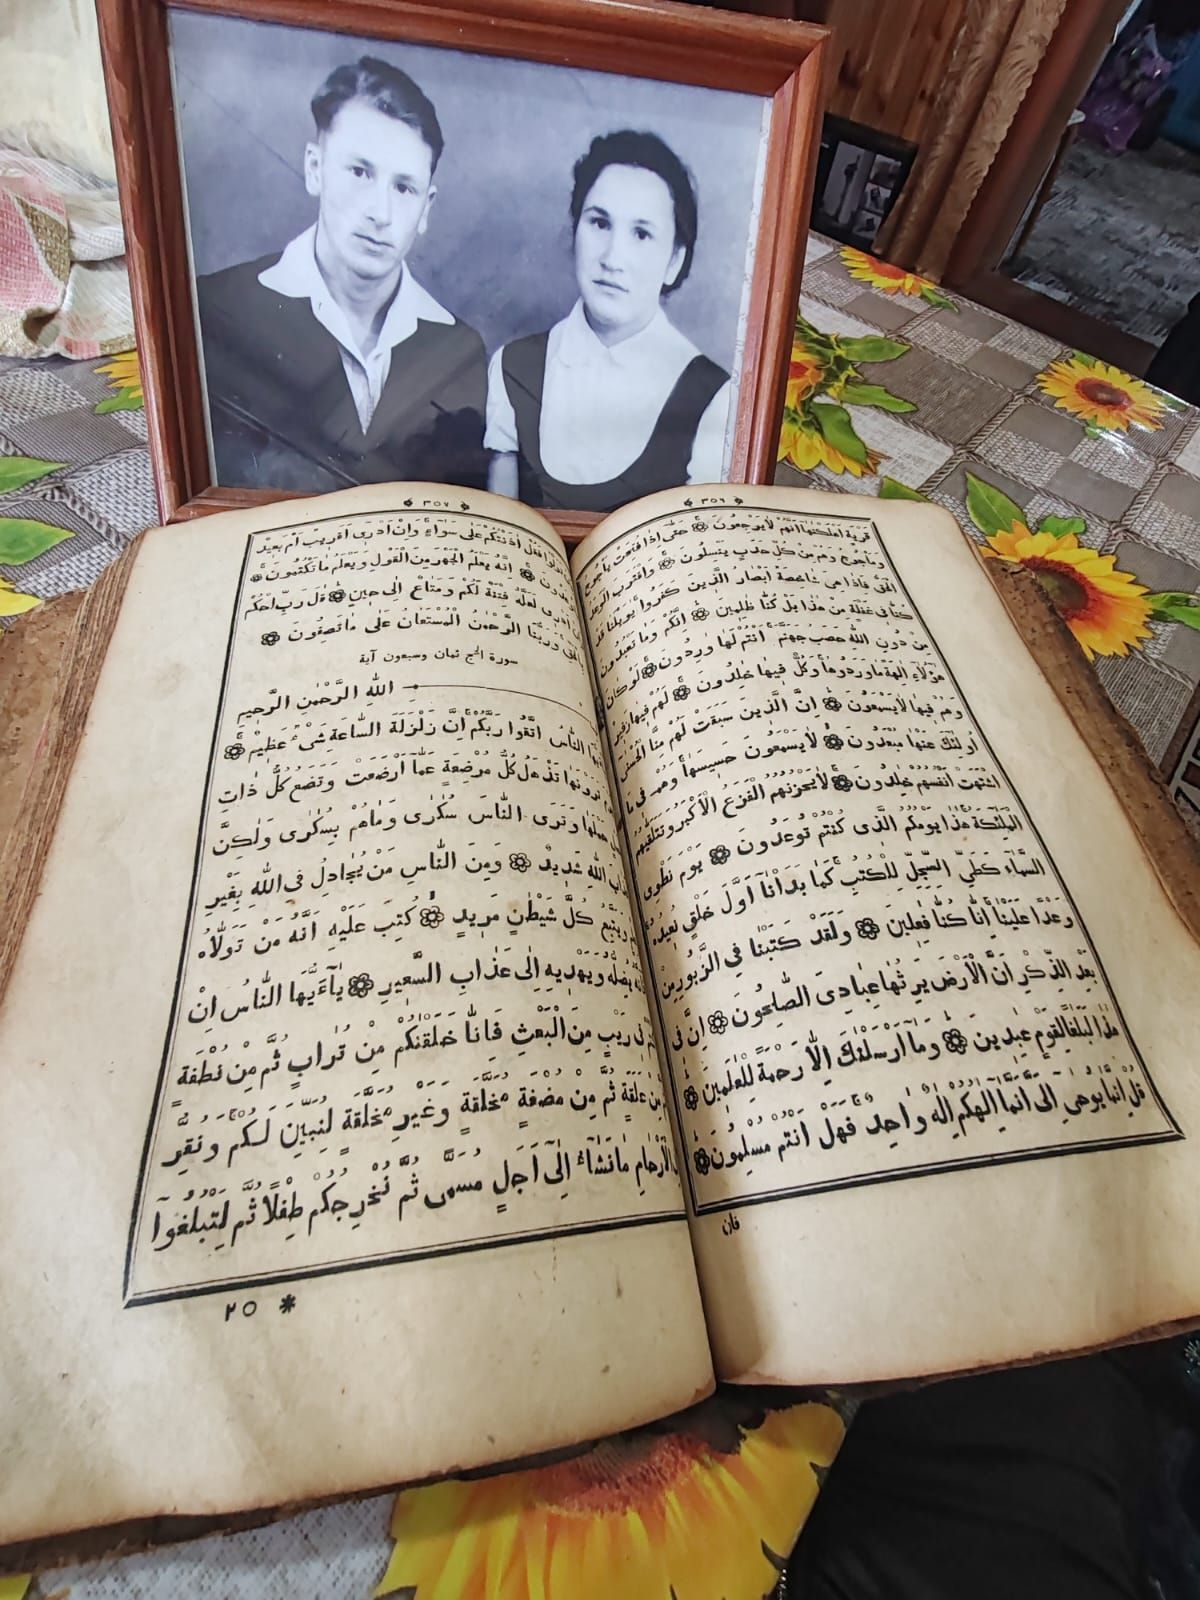 ﴿ ٣٥٦ ﴾
قَرْيَةٍ اَهْلَكْنٰهَا اَنَّهُمْ لَا يَرْجِعُونَ ۞ حَتّٰى اِذَا فُتِحَتْ يَأْجُوجُ
وَمَأْجُوجُ وَهُمْ مِنْ كُلِّ حَدَبٍ يَنْسِلُونَ ۞ وَاقْتَرَبَ الْوَعْدُ
الْحَقُّ فَاِذَا هِىَ شَاخِصَةٌ اَبْصَارُ الَّذِينَ كَفَرُوا يٰوَيْلَنَا قَدْ
كُنَّا فِى غَفْلَةٍ مِنْ هٰذَا بَلْ كُنَّا ظٰلِمِينَ ۞ اِنَّكُمْ وَمَا تَعْبُدُونَ
مِنْ دُونِ اللّٰهِ حَصَبُ جَهَنَّمَ اَنْتُمْ لَهَا وٰرِدُونَ ۞ لَوْ كَانَ
هٰٓؤُلَاءِ اٰلِهَةً مَا وَرَدُوهَا وَكُلٌّ فِيهَا خٰلِدُونَ ۞ لَهُمْ فِيهَا زَفِيرٌ
وَهُمْ فِيهَا لَا يَسْمَعُونَ ۞ اِنَّ الَّذِينَ سَبَقَتْ لَهُمْ مِنَّا الْحُسْنٰى
اُولٰئِكَ عَنْهَا مُبْعَدُونَ ۞ لَا يَسْمَعُونَ حَسِيسَهَا وَهُمْ فِى مَا
اشْتَهَتْ اَنْفُسُهُمْ خٰلِدُونَ ۞ لَا يَحْزُنُهُمُ الْفَزَعُ الْاَكْبَرُ وَتَتَلَقّٰيهُمُ
الْمَلٰئِكَةُ هٰذَا يَوْمُكُمُ الَّذِى كُنْتُمْ تُوعَدُونَ ۞ يَوْمَ نَطْوِى
السَّمَآءَ كَطَىِّ السِّجِلِّ لِلْكُتُبِ كَمَا بَدَاْنَا اَوَّلَ خَلْقٍ نُعِيدُهُ
وَعْدًا عَلَيْنَا اِنَّا كُنَّا فٰعِلِينَ ۞ وَلَقَدْ كَتَبْنَا فِى الزَّبُورِ مِنْ
بَعْدِ الذِّكْرِ اَنَّ الْاَرْضَ يَرِثُهَا عِبَادِىَ الصّٰلِحُونَ ۞ اِنَّ فِى
هٰذَا لَبَلٰغًا لِقَوْمٍ عٰبِدِينَ ۞ وَمَآ اَرْسَلْنٰكَ اِلَّا رَحْمَةً لِلْعٰلَمِينَ ۞
قُلْ اِنَّمَا يُوحٰى اِلَىَّ اَنَّمَآ اِلٰهُكُمْ اِلٰهٌ وٰاحِدٌ فَهَلْ اَنْتُمْ مُسْلِمُونَ ۞
فان
﴿ ٣٥٧ ﴾
فَقُلْ اٰذَنْتُكُمْ عَلٰى سَوَآءٍ وَاِنْ اَدْرِى اَقَرِيبٌ اَمْ بَعِيدٌ
۞ اِنَّهُ يَعْلَمُ الْجَهْرَ مِنَ الْقَوْلِ وَيَعْلَمُ مَا تَكْتُمُونَ ۞
لَعَلَّهُ فِتْنَةٌ لَكُمْ وَمَتَاعٌ اِلٰى حِينٍ ۞ قٰلَ رَبِّ احْكُمْ
وَرَبُّنَا الرَّحْمٰنُ الْمُسْتَعَانُ عَلٰى مَا تَصِفُونَ ۞
سورة الحج ثمان وسبعون آية
اللّٰهِ الرَّحْمٰنِ الرَّحِيمِ
النَّاسُ اتَّقُوا رَبَّكُمْ اِنَّ زَلْزَلَةَ السَّاعَةِ شَىْءٌ عَظِيمٌ ۞
تَرَوْنَهَا تَذْهَلُ كُلُّ مُرْضِعَةٍ عَمَّآ اَرْضَعَتْ وَتَضَعُ كُلُّ ذَاتِ
حَمْلَهَا وَتَرَى النَّاسَ سُكٰرٰى وَمَا هُمْ بِسُكٰرٰى وَلٰكِنَّ
اللّٰهِ شَدِيدٌ ۞ وَمِنَ النَّاسِ مَنْ يُجَادِلُ فِى اللّٰهِ بِغَيْرِ
وَيَتَّبِعُ كُلَّ شَيْطٰنٍ مَرِيدٍ ۞ كُتِبَ عَلَيْهِ اَنَّهُ مَنْ تَوَلَّاهُ
يُضِلُّهُ وَيَهْدِيهِ اِلٰى عَذَابِ السَّعِيرِ ۞ يَآ اَيُّهَا النَّاسُ اِنْ
فِى رَيْبٍ مِنَ الْبَعْثِ فَاِنَّا خَلَقْنٰكُمْ مِنْ تُرَابٍ ثُمَّ مِنْ نُطْفَةٍ
مِنْ عَلَقَةٍ ثُمَّ مِنْ مُضْغَةٍ مُخَلَّقَةٍ وَغَيْرِ مُخَلَّقَةٍ لِنُبَيِّنَ لَكُمْ وَنُقِرُّ
الْاَرْحَامِ مَا نَشَآءُ اِلٰٓى اَجَلٍ مُسَمًّى ثُمَّ نُخْرِجُكُمْ طِفْلًا ثُمَّ لِتَبْلُغُوآ
* ٢٥